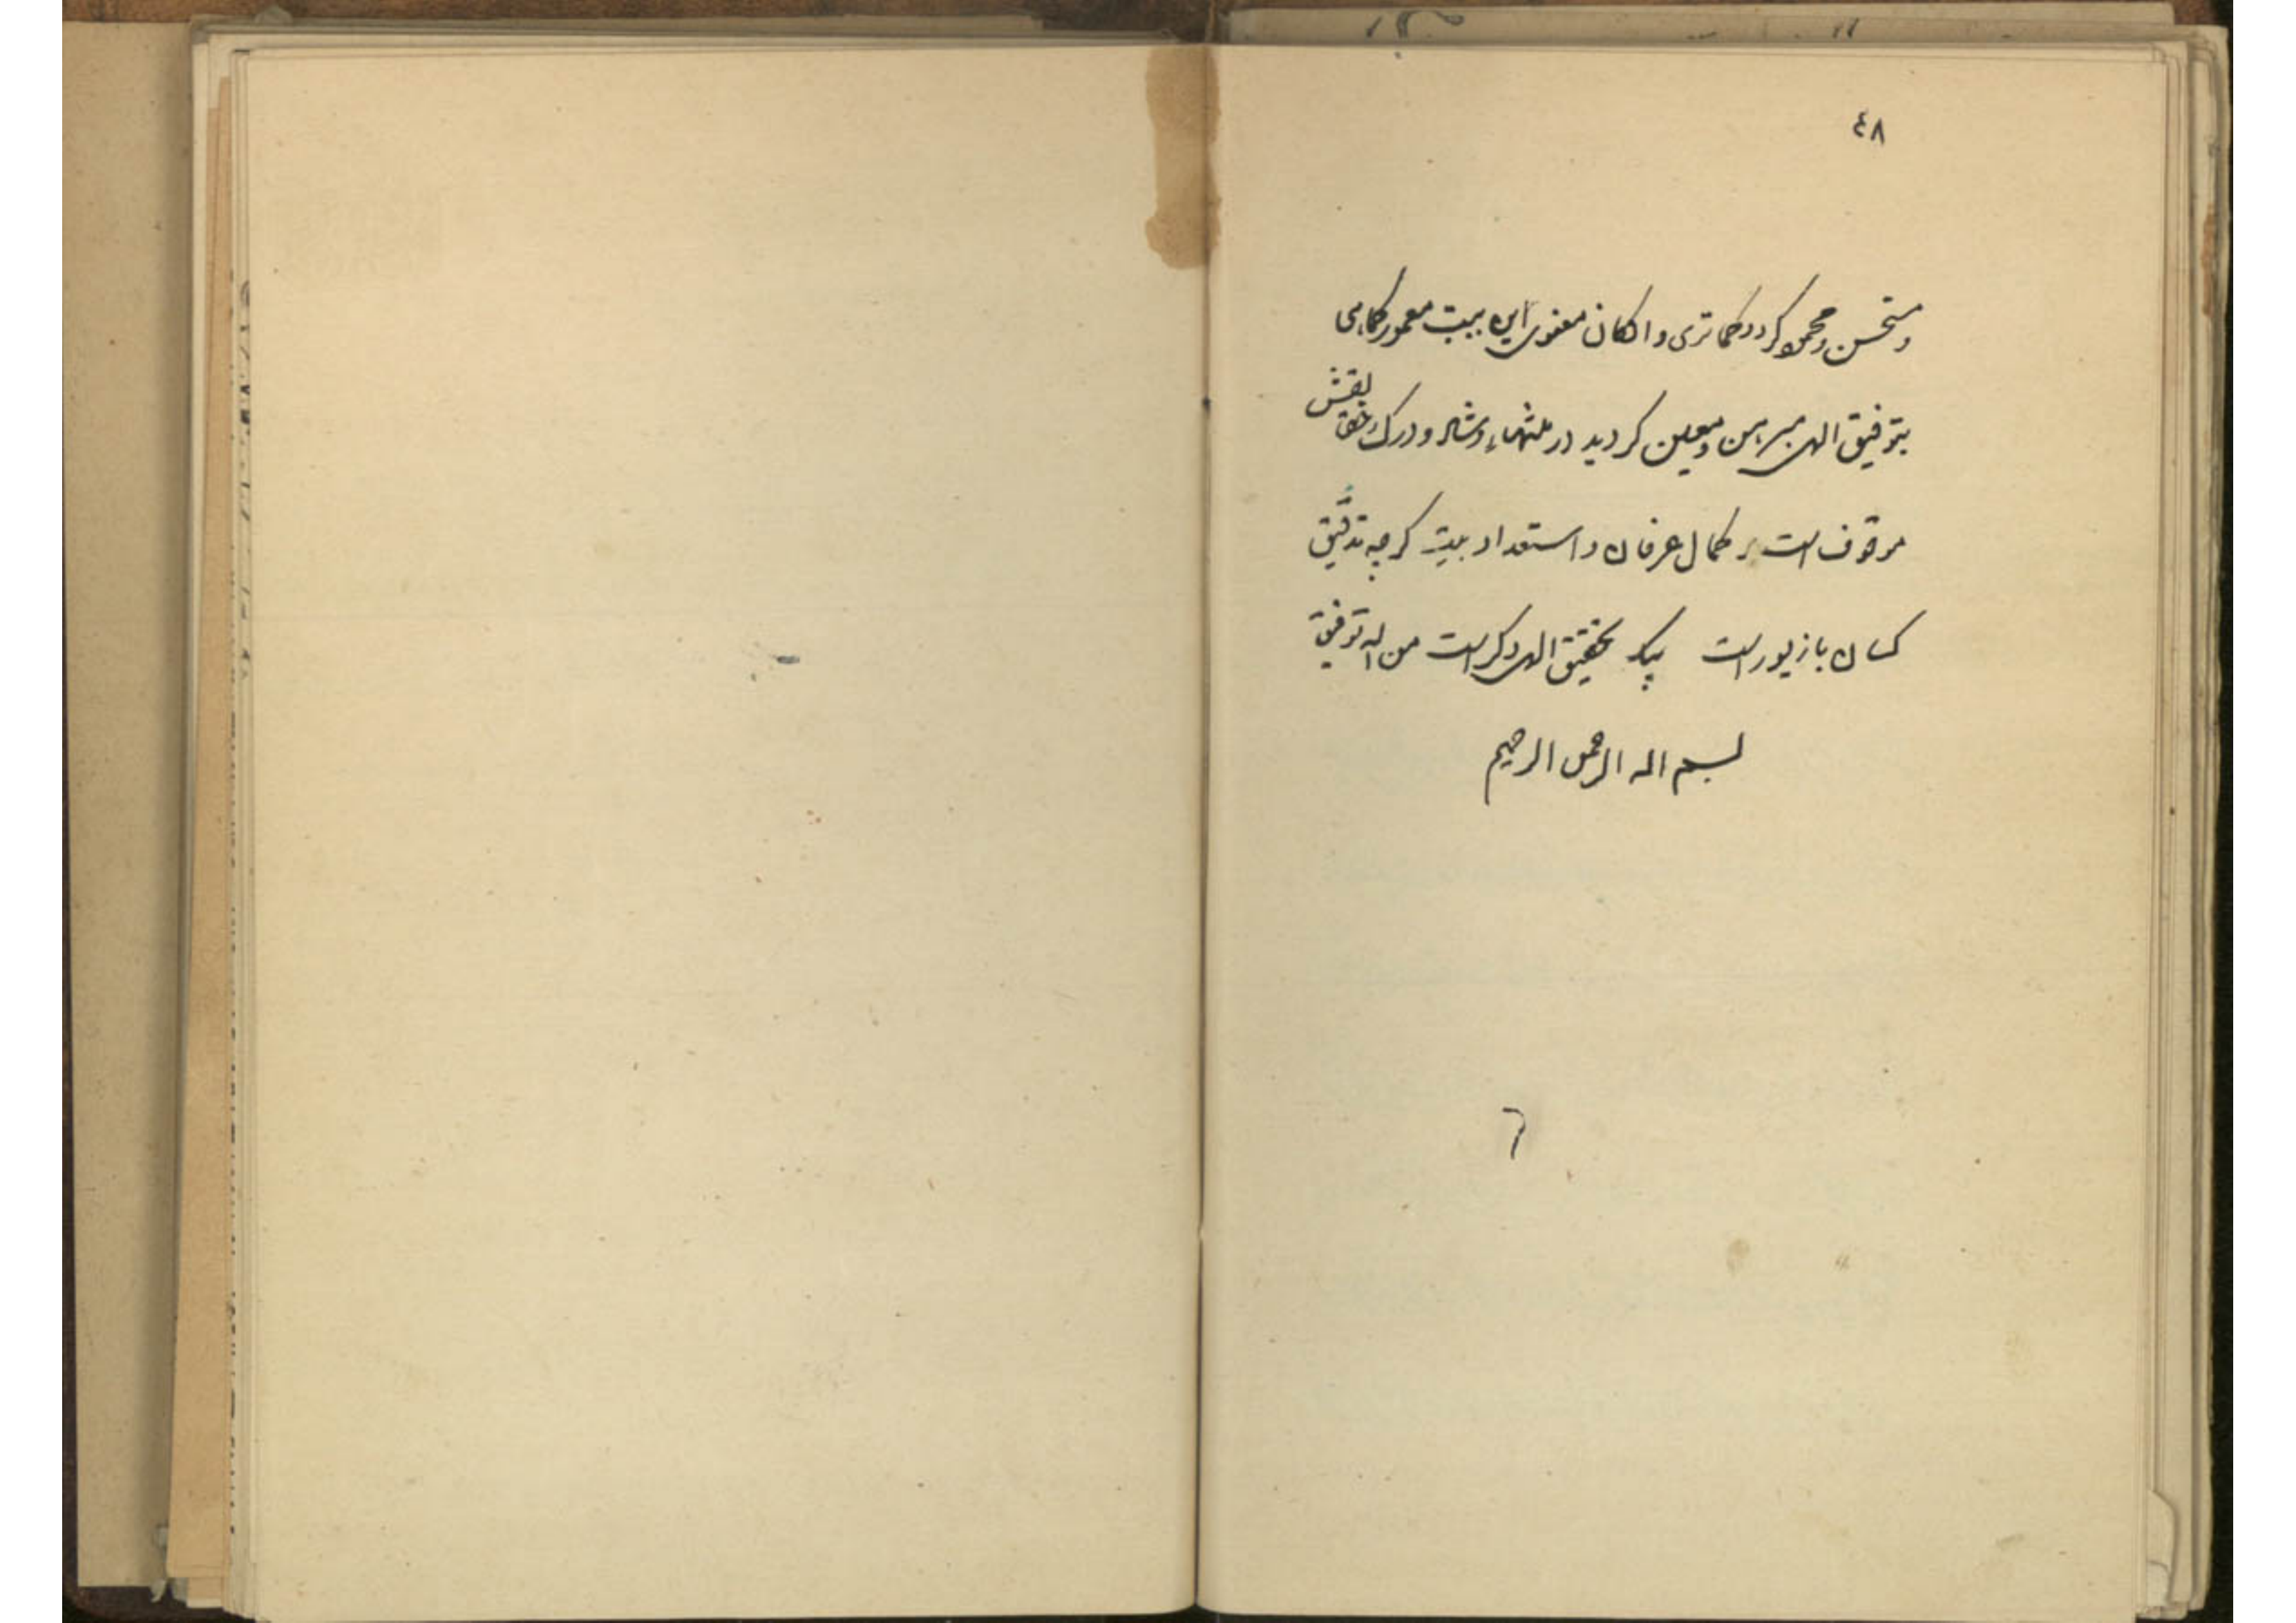 ٤٨
ومستحسن ومحمود کردد کما تری وارکان معنوی این بیت معمور کما هی
بتوفیق الهی مبرهن ومعین کردید در
موقوف است بر کمال عرفان واستعداد بیت کرچه تدقیق
کسان بازیور است لیک تحقیق الهی دکر است من الله توفیق
بسم الله الرحمن الرحیم